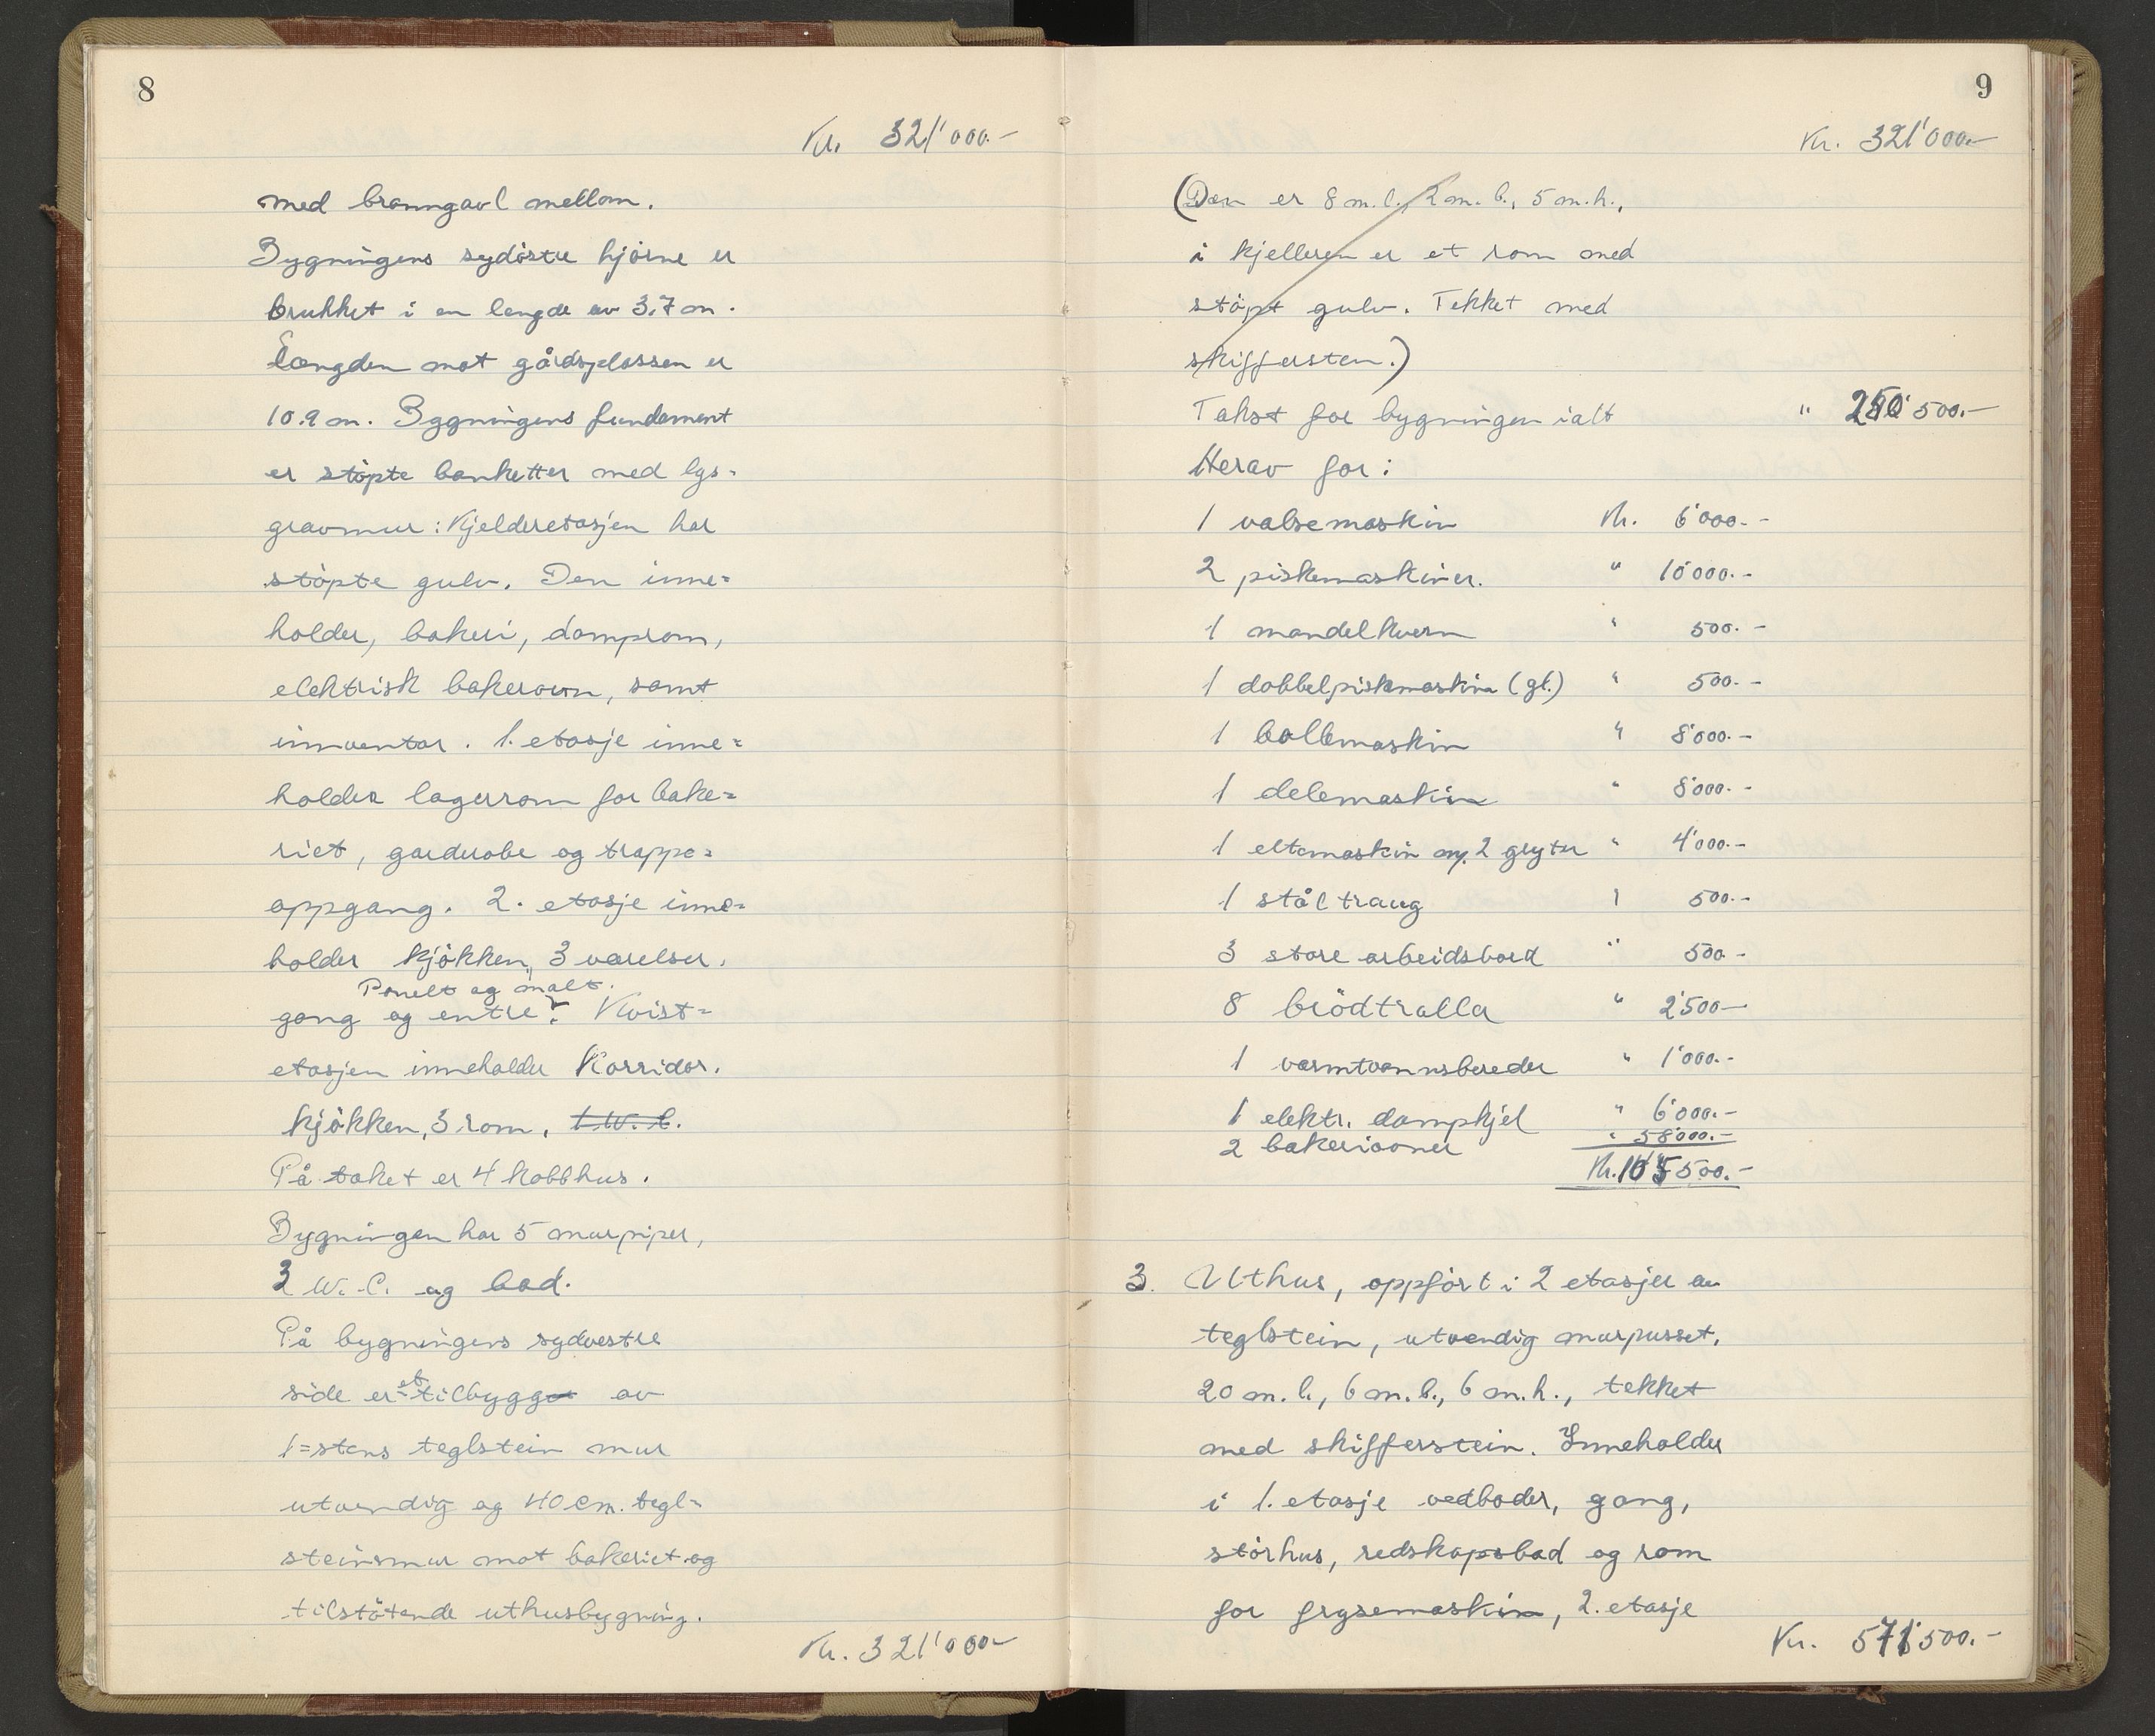 8
Kr. 321'000.-
med branngavl mellom.
Bygningens sydöstre hjörne er
brukket i en lengde av 3,7 m.
Længden mot gårdsplassen er
10.9 m. Bygningens fundament
er stöpte banketter med lys-
gravmur: Kjelderetasjen har
stöpte gulv. Den inne=
holder, bakeri, damprom,
elektrisk bakerovn, samt
innventar. 1. etasje inne=
holder lagerrom for bake=
riet, garderobe og trappe=
oppgang. 2. etasje inne=
holder kjökken, 3 værelser,
Panelt og malt.
gang og entre. Kvist=
etasjen inneholder Korridor.
kjökken, 3 rom, 1 W.C.
På taket er 4 kobbhus.
Bygningen har 5 murpiper,
3 W.C. og bad.
På bygningens sydvestre
side er et tilbygg av
1=stens teglstein mur
utvendig og 40 cm. tegl=
steinsmur mot bakeriet og
tilstötende uthusbygning.
Kr. 321'000-
9
Kr. 321'000.-
(Den er 8 m.l., 2 m.b., 5 m.h.,
i kjelleren er et rom med
stöpt gulv. Tekket med
skiffersten.)
Takst for bygningen ialt " 250'500.-
Herav for:
1 valsemaskin Kr. 6'000.-
2 piskemaskiner. " 10'000.-
1 mandelkvern " 500.-
1 dobbelpiskmaskin (gl.) " 500.-
1 bollemaskin " 8'000.-
1 delemaskin " 8'000.-
1 eltemaskin m/. 2 gryter " 4'000.-
1 ståltraug " 500.-
3 store arbeidsbord " 500-
8 brödtralla " 2'500-
1 varmtvannsbereder " 1'000.-
1 elektr. dampkjel " 6'000.-
2 bakeriovner " 58'000.-
Kr. 105'500.-
3. Uthus, oppfört i 2 etasjer av
teglstein, utvendig murpusset,
20 m.l., 6 m.b., 6 m.h., tekket
med skifferstein. Inneholder
i 1. etasje vedboder, gang,
störhus, redskapsbod og rom
for frysemaskin, 2. etasje
Kr. 571'500.-